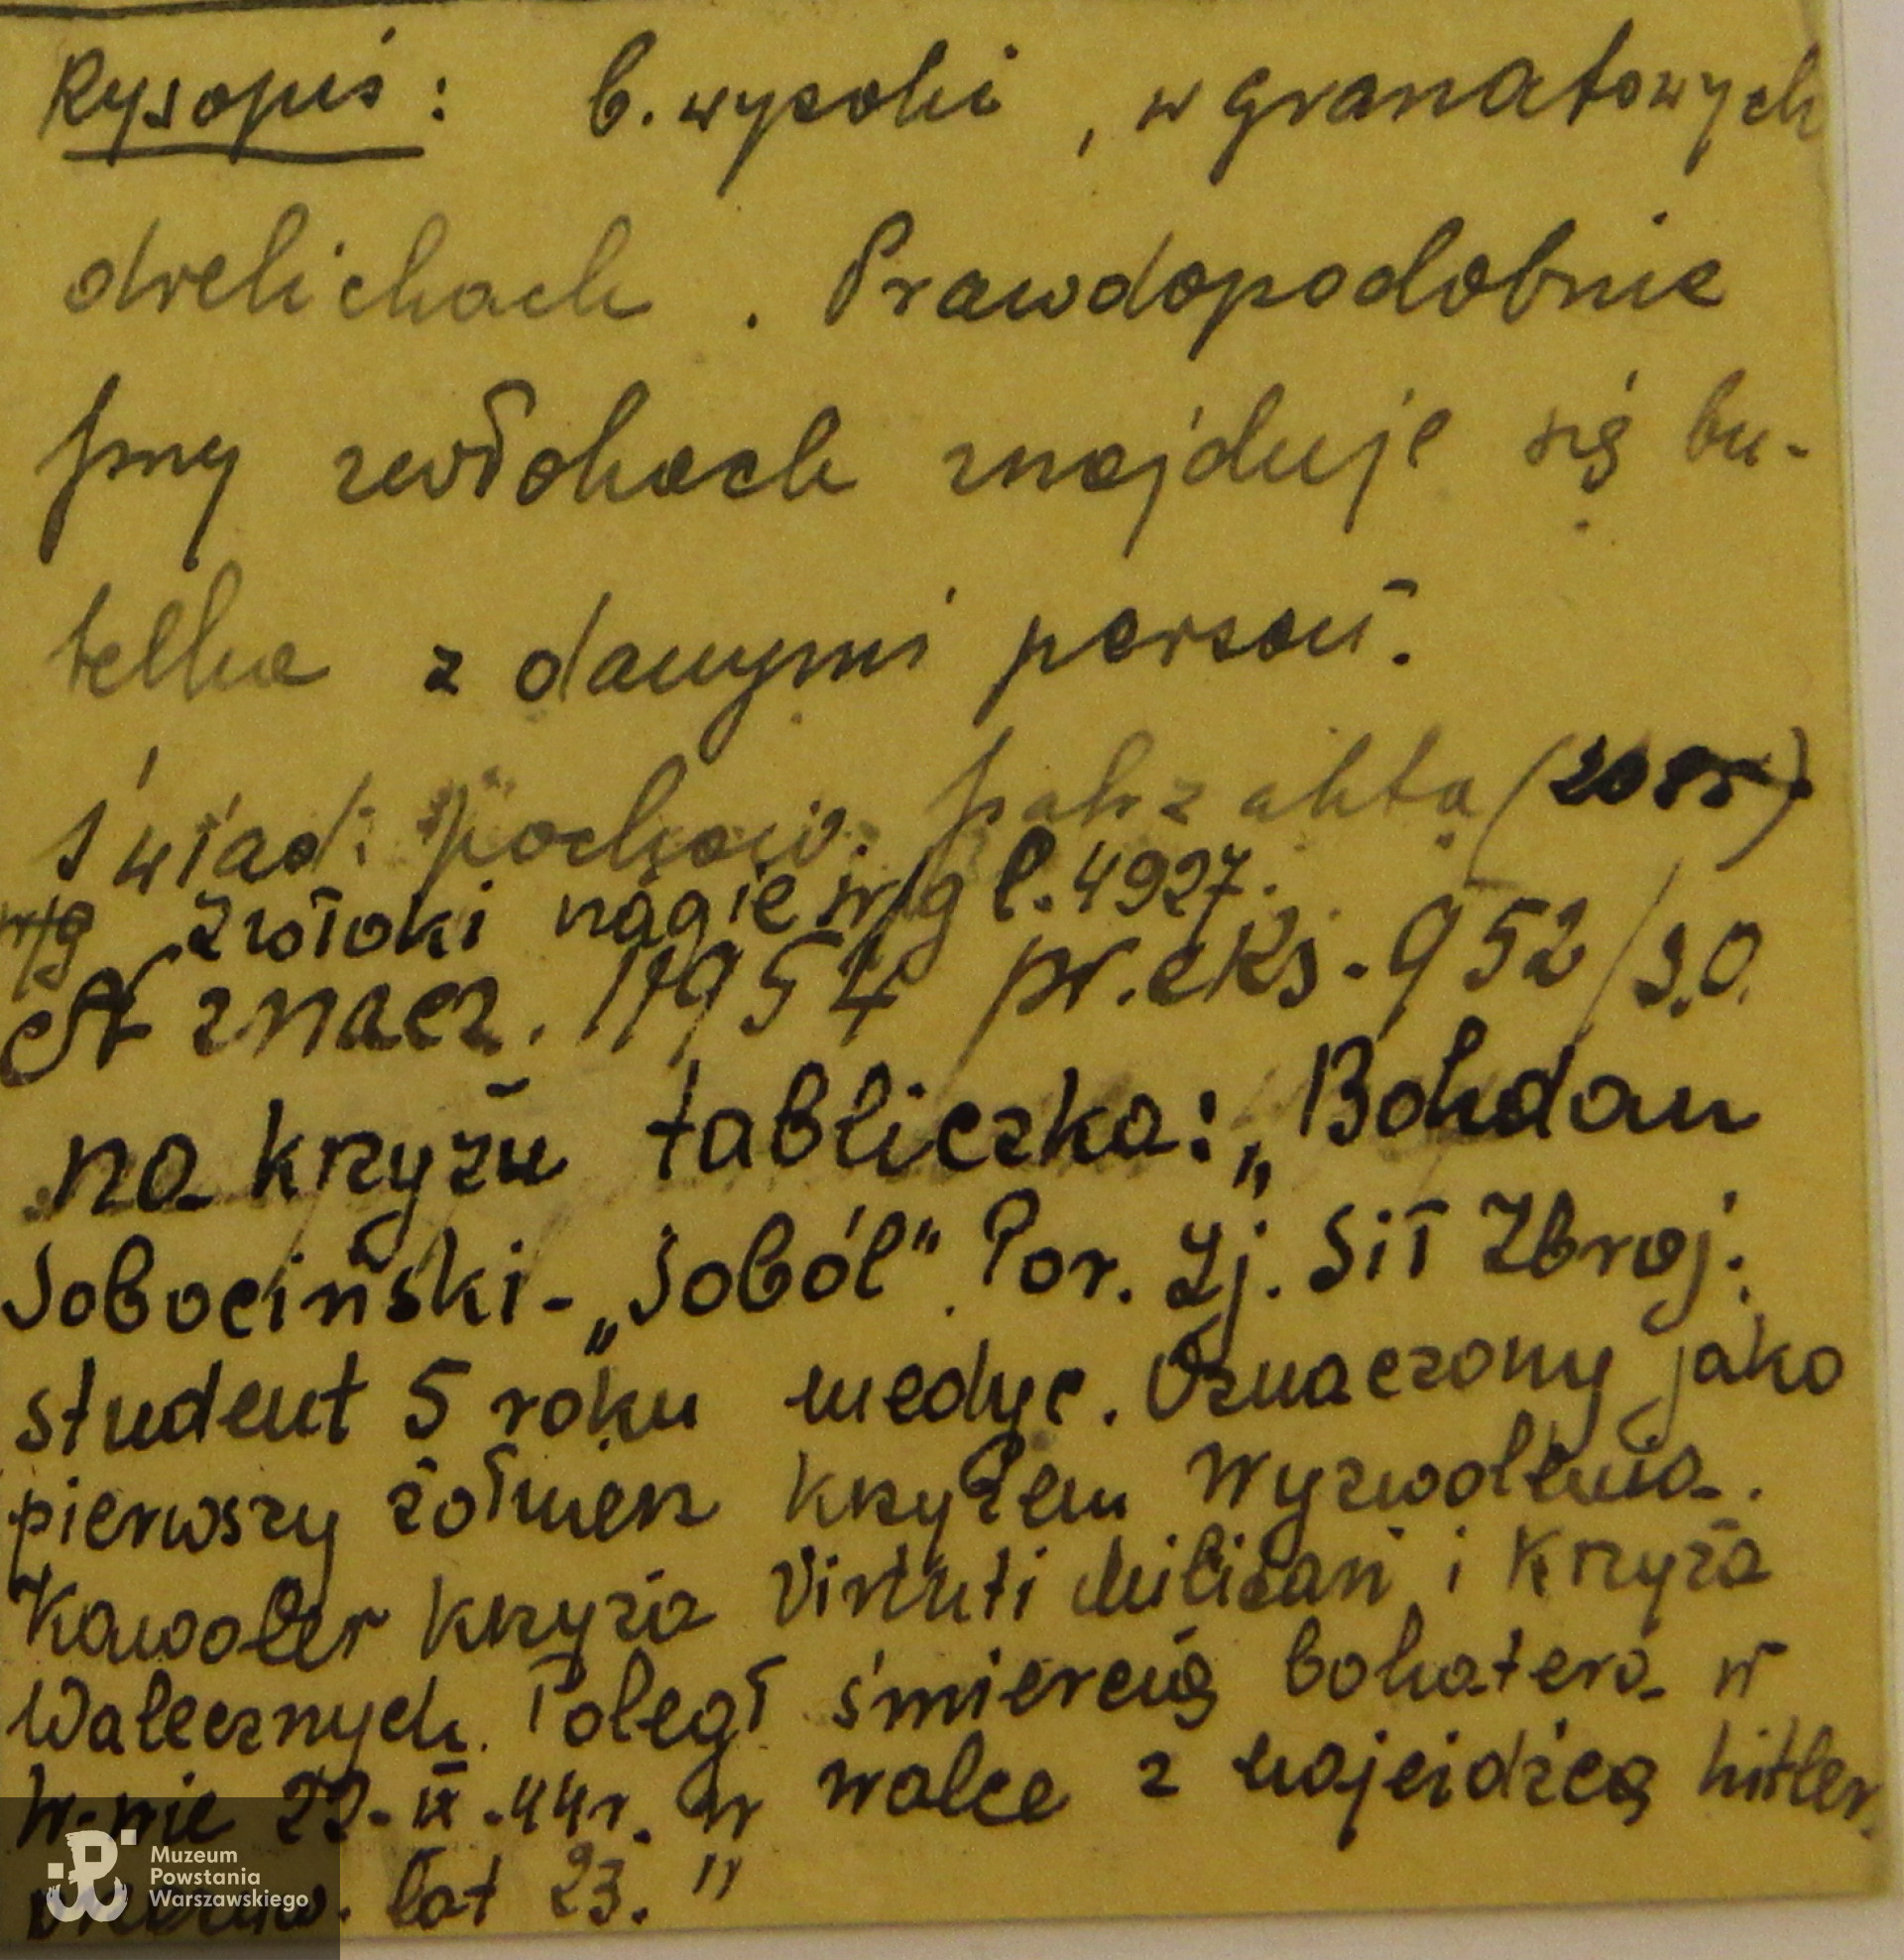 Rysopis: b. wysoki, w granatowych
drelichach. Prawdopodobnie
przy zwłokach znajduje się bu-
telka z danymi person.
świad. pochow. patrz akta (208r)
w/g zwłoki nagie w/g l. 4927.
znacz. 11954 pr. eks. 952/
na krzyżu tabliczka: „Bohdan
Sobociński - „Soból" Por. Zj. Sił Zbroj.
student 5 roku medyc. Oznaczony jako
pierwszy żołnierz krzyżem Wyzwolenia.
Kawaler krzyża Virtuti Militari i krzyża
Walecznych. Poległ śmiercią bohatera w
W-wie 22-IX-44r. w walce z najeidźcą hitler.
lat 23."
Muzeum
Powstania
Warszawskiego